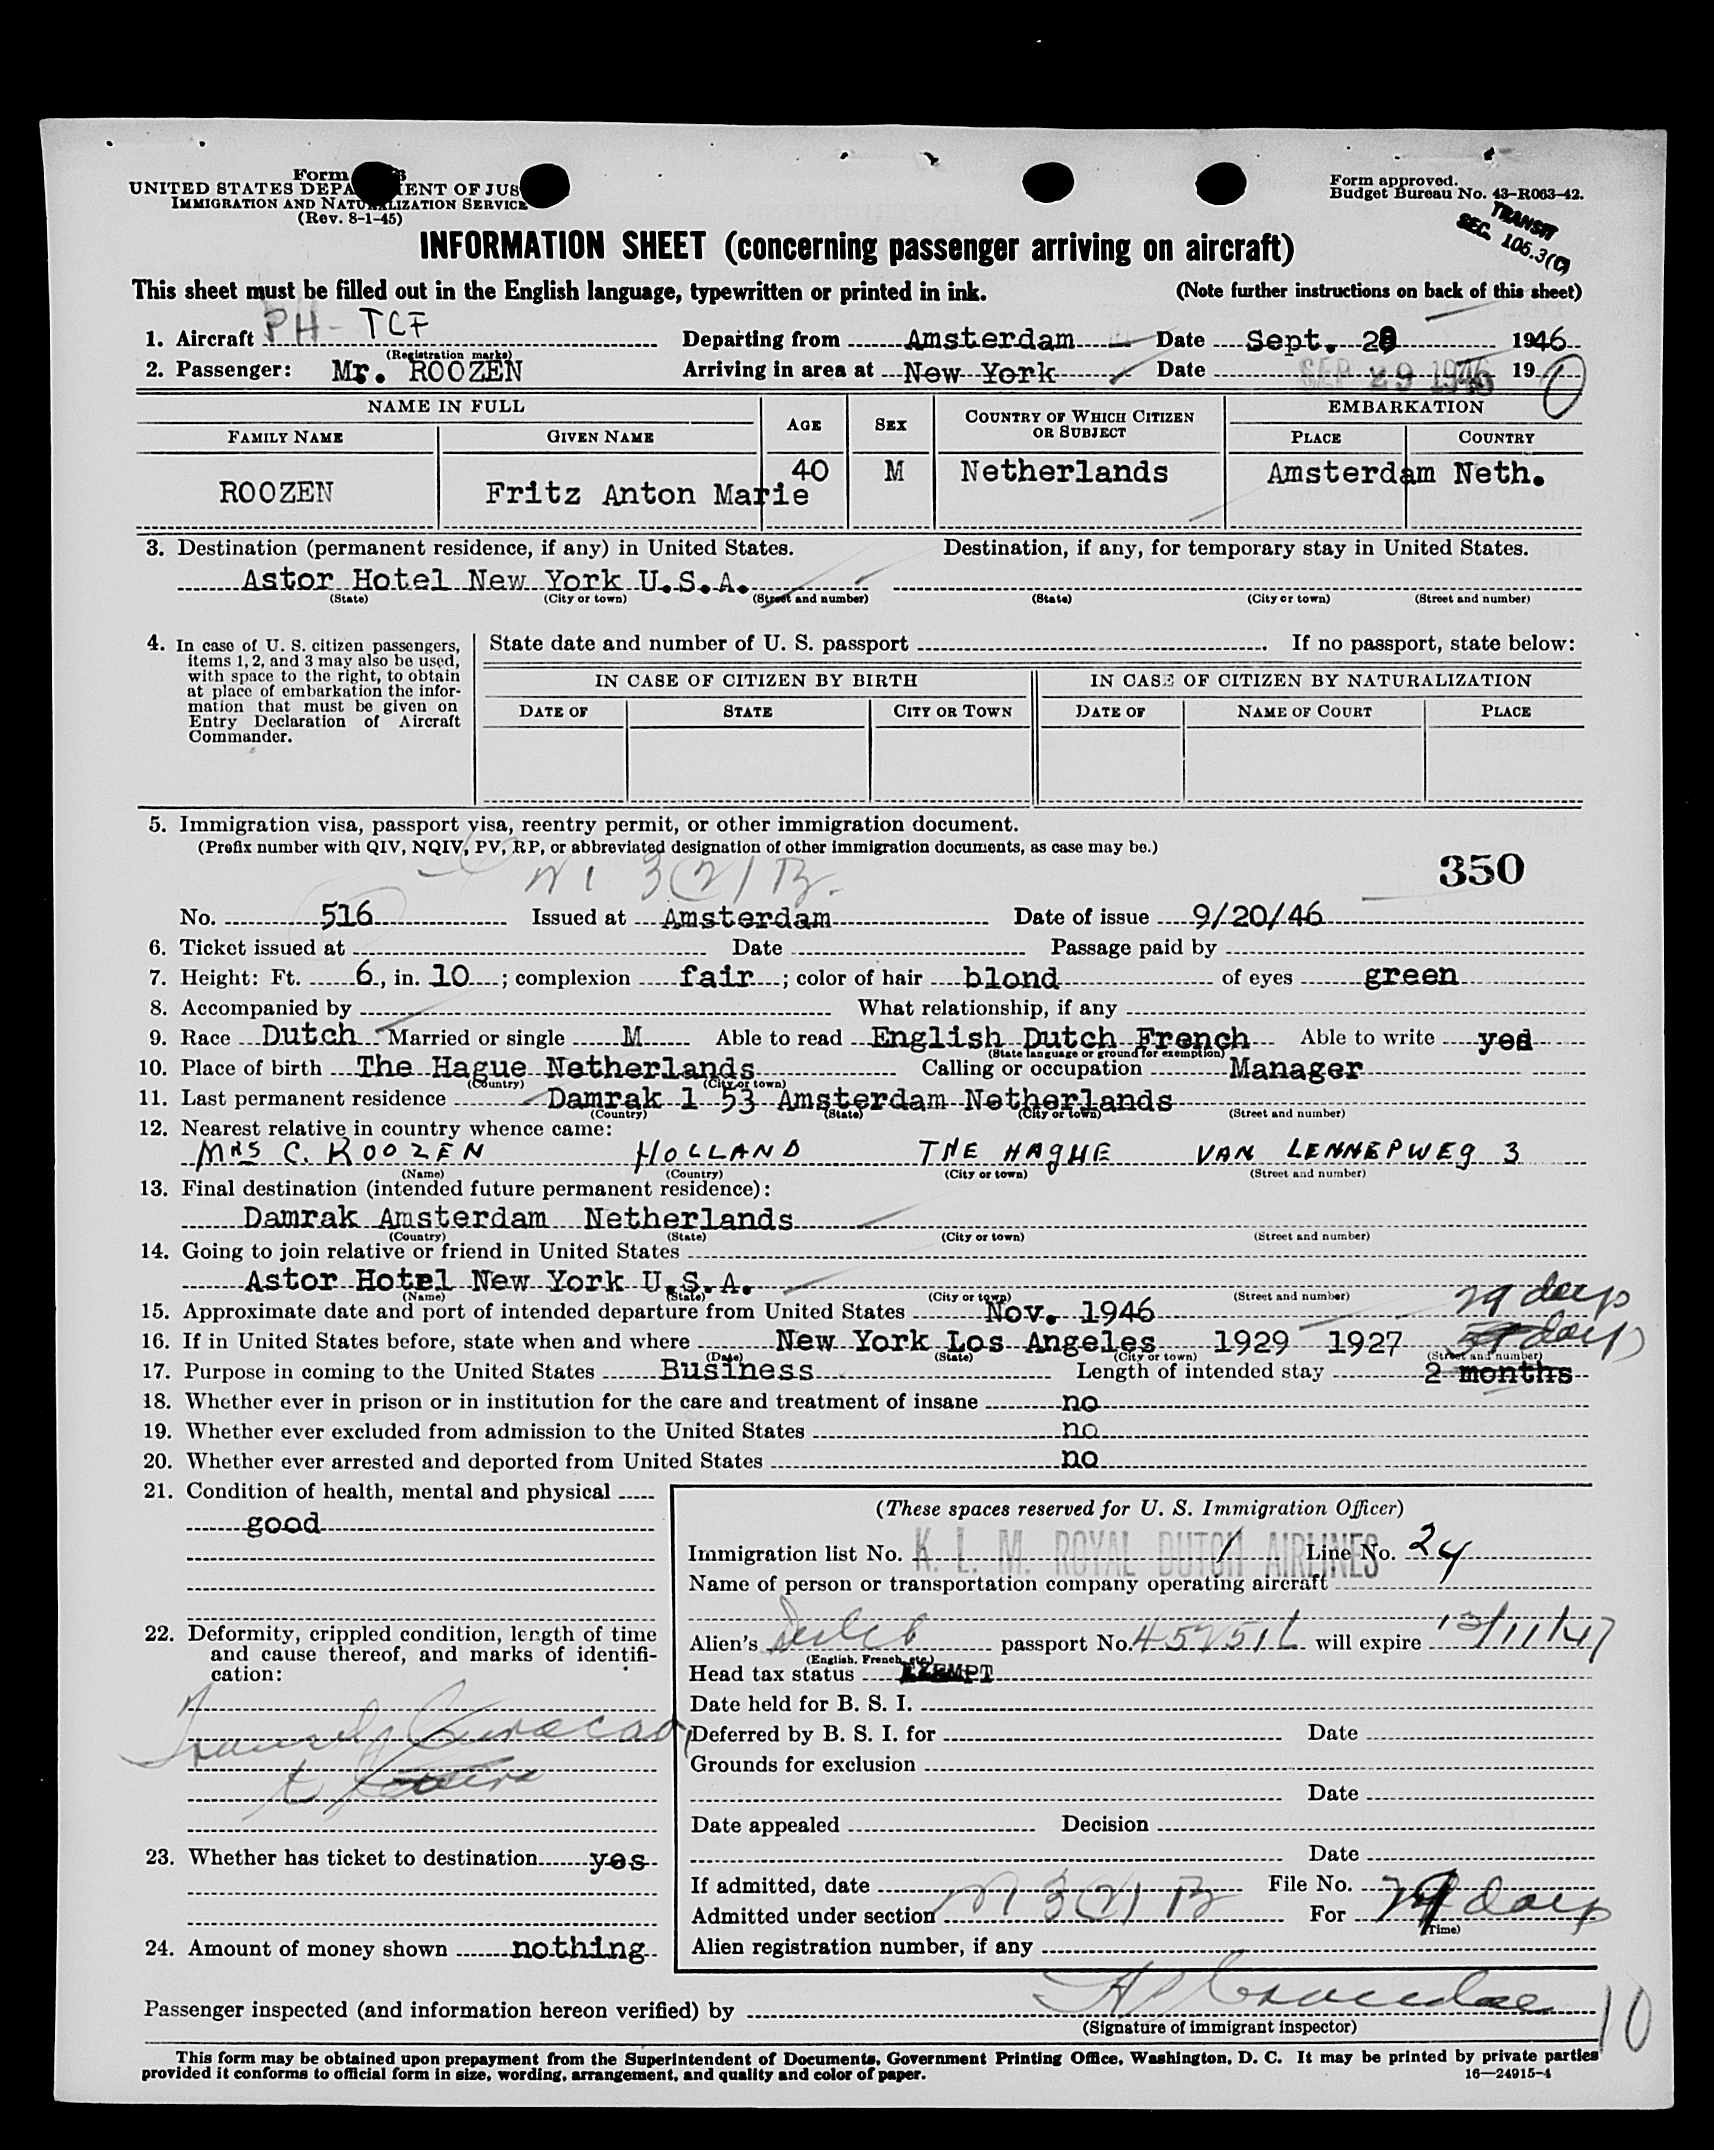 Form
UNITED STATES DEPA ENT OF JUS
IMMIGRATION AND NATURALIZATION SERVICE
(Rev. 8-1-45)
Form approved.
Budget Bureau No. 43-R063-42.
TRANSIT
SEC. 105.3(C)
INFORMATION SHEET (concerning passenger arriving on aircraft)
This sheet must be filled out in the English language, typewritten or printed in ink. (Note further instructions on back of this sheet)
1. Aircraft PH-TCF Departing from Amsterdam Date Sept. 28 1946
(Registration marks)
2. Passenger: Mr. ROOZEN Arriving in area at New York Date SEP 29 1946 19
NAME IN FULL AGE SEX COUNTRY OF WHICH CITIZEN OR SUBJECT EMBARKATION
FAMILY NAME GIVEN NAME PLACE COUNTRY
ROOZEN Fritz Anton Marie 40 M Netherlands Amsterdam Neth.
3. Destination (permanent residence, if any) in United States. Destination, if any, for temporary stay in United States.
Astor Hotel New York U.S.A.
(State) (City or town) (Street and number) (State) (City or town) (Street and number)
4. In case of U. S. citizen passengers, items 1, 2, and 3 may also be used, with space to the right, to obtain at place of embarkation the information that must be given on Entry Declaration of Aircraft Commander.
State date and number of U. S. passport . If no passport, state below:
IN CASE OF CITIZEN BY BIRTH IN CASE OF CITIZEN BY NATURALIZATION
DATE OF STATE CITY OR TOWN DATE OF NAME OF COURT PLACE
5. Immigration visa, passport visa, reentry permit, or other immigration document.
(Prefix number with QIV, NQIV, PV, RP, or abbreviated designation of other immigration documents, as case may be.)
350
No. 516 Issued at Amsterdam Date of issue 9/20/46
6. Ticket issued at Date Passage paid by
7. Height: Ft. 6, in. 10; complexion fair; color of hair blond of eyes green
8. Accompanied by What relationship, if any
9. Race Dutch Married or single M Able to read English Dutch French Able to write yes
(State language or ground for exemption)
10. Place of birth The Hague Netherlands Calling or occupation Manager
(Country) (City or town)
11. Last permanent residence Damrak 1 53 Amsterdam Netherlands
(Country) (State) (City or town) (Street and number)
12. Nearest relative in country whence came:
MRS C. ROOZEN HOLLAND THE HAGUE VAN LENNEPWEG 3
(Name) (Country) (City or town) (Street and number)
13. Final destination (intended future permanent residence):
Damrak Amsterdam Netherlands
(Country) (State) (City or town) (Street and number)
14. Going to join relative or friend in United States
Astor Hotel New York U.S.A.
(Name) (State) (City or town) (Street and number)
29 days
15. Approximate date and port of intended departure from United States Nov. 1946
16. If in United States before, state when and where New York Los Angeles 1929 1927
(Date) (State) (City or town) (Street and number)
17. Purpose in coming to the United States Business Length of intended stay 2 months
18. Whether ever in prison or in institution for the care and treatment of insane no
19. Whether ever excluded from admission to the United States no
20. Whether ever arrested and deported from United States no
21. Condition of health, mental and physical
good
22. Deformity, crippled condition, length of time and cause thereof, and marks of identification:
Curacao
23. Whether has ticket to destination yes
24. Amount of money shown nothing
(These spaces reserved for U. S. Immigration Officer)
K. L. M. ROYAL DUTCH AIRLINES
Immigration list No. 1 Line No. 24
Name of person or transportation company operating aircraft
Alien's Dutch passport No. will expire 13/11/47
(English, French, etc.)
Head tax status EXEMPT
Date held for B. S. I.
Deferred by B. S. I. for Date
Grounds for exclusion
Date
Date appealed Decision
Date
If admitted, date File No.
Admitted under section 3(2)1 B For 29 days
(Time)
Alien registration number, if any
Passenger inspected (and information hereon verified) by
(Signature of immigrant inspector)
10
This form may be obtained upon prepayment from the Superintendent of Documents, Government Printing Office, Washington, D. C. It may be printed by private parties
provided it conforms to official form in size, wording, arrangement, and quality and color of paper. 16—24915-4